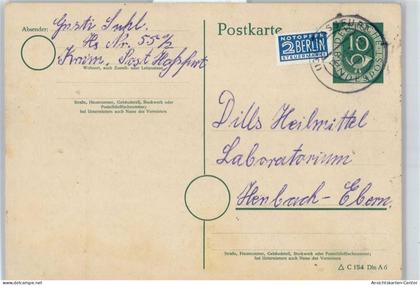 Absender: Gusti Suhl.
Hs Nr. 55 a/2
Krum, Post Haßfurt
Wohnort, auch Zustell- oder Leitpostamt
Straße, Hausnummer, Gebäudeteil, Stockwerk oder
Postschließfachnummer;
bei Untermietern auch Name des Vermieters
Postkarte
NOTOPFER
2 BERLIN
STEUERMARKE
10
DEUTSCHE BUNDESPOST
Dills Heilmittel
Laboratorium
Henbach-Ebern
Straße, Hausnummer, Gebäudeteil, Stockwerk oder Postschließfachnummer;
bei Untermietern auch Name des Vermieters
△ C 154 Din A 6
Ansichtskarten-Center